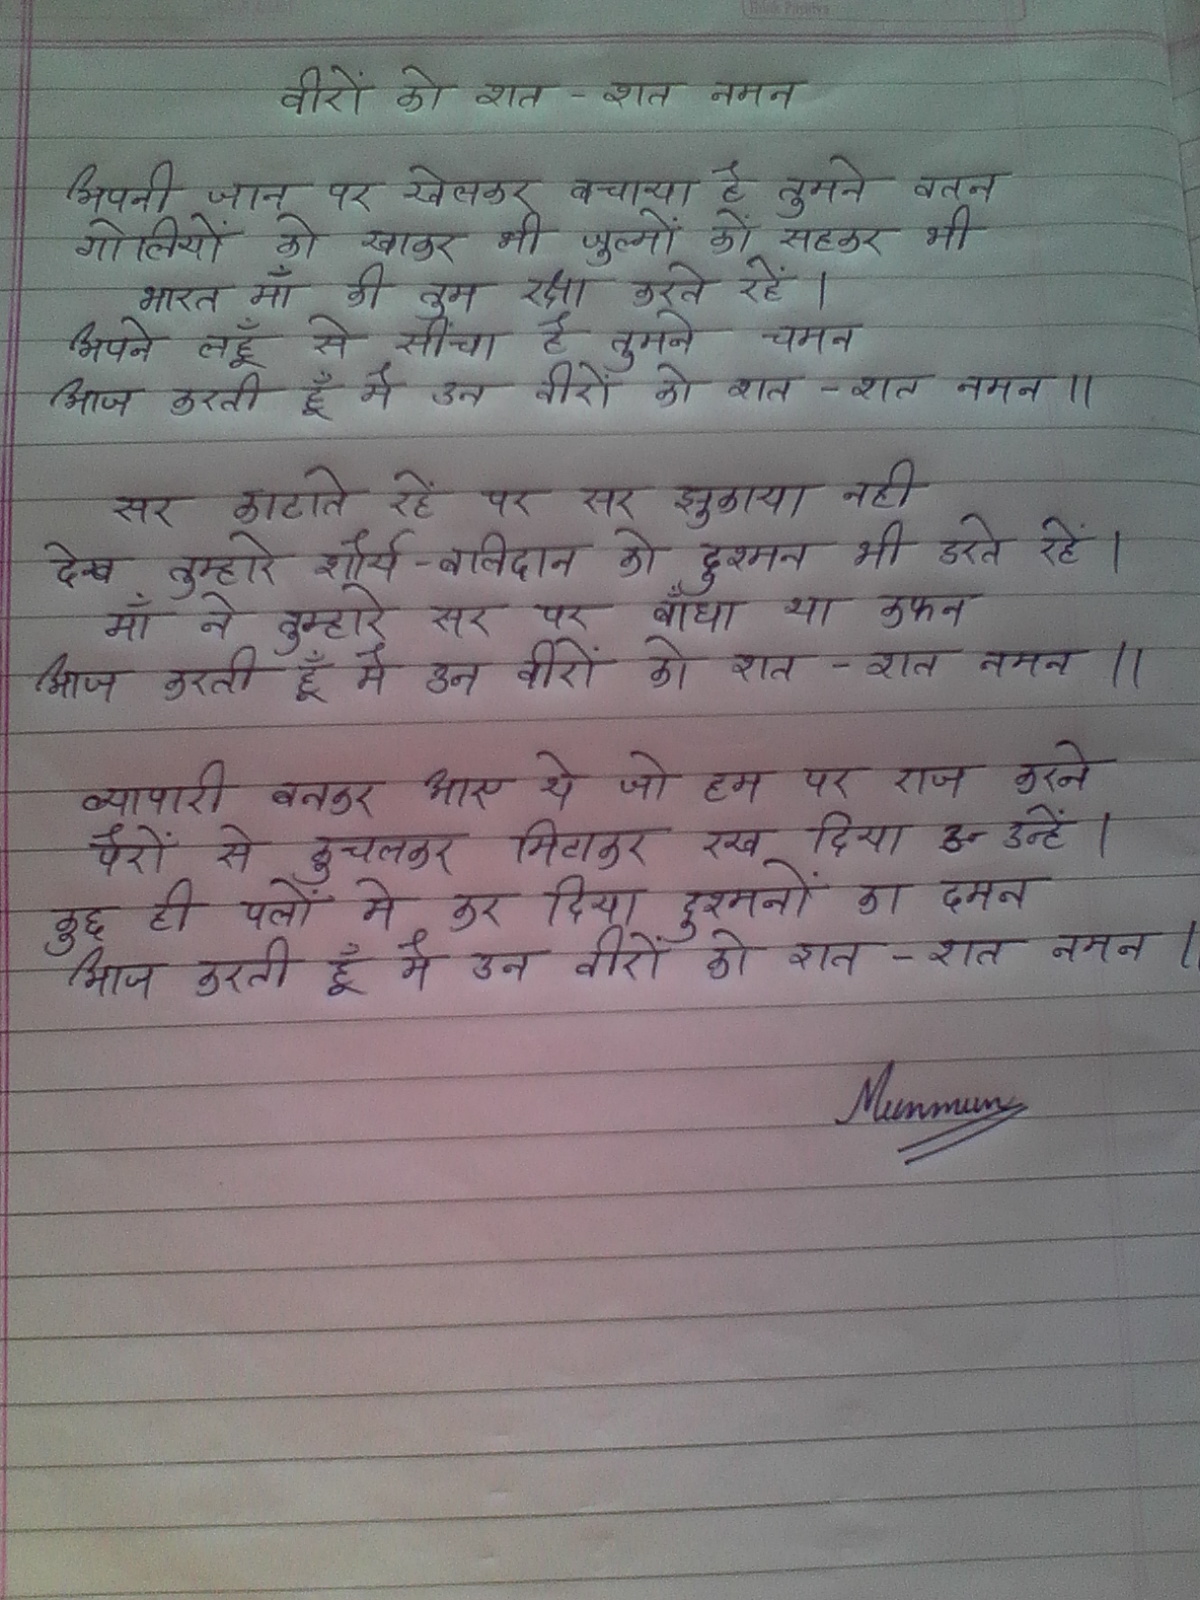 वीरों को शत - शत नमन
अपनी जान पर खेलकर बचाया है तुमने वतन
गोलियों को खाकर भी जुल्मों कों सहकर भी
भारत माँ की तुम रक्षा करते रहें ।
अपने लहूँ से सींचा है तुमने चमन
आज करती हूँ मै उन वीरों को शत - शत नमन ॥
सर काटाते रहें पर सर झुकाया नही
देख तुम्हारे शौर्य - बलिदान को दुश्मन भी डरते रहें ।
माँ ने तुम्हारे सर पर बाँधा था कफन
आज करती हूँ मै उन वीरों को शत - शत नमन ॥
व्यापारी बनकर आए थे जो हम पर राज करने
पैरों से कुचलकर मिटाकर रख दिया उन्हें ।
कुछ ही पलों मे कर दिया दुश्मनों का दमन
आज करती हूँ मै उन वीरों को शत - शत नमन ॥
Munmun